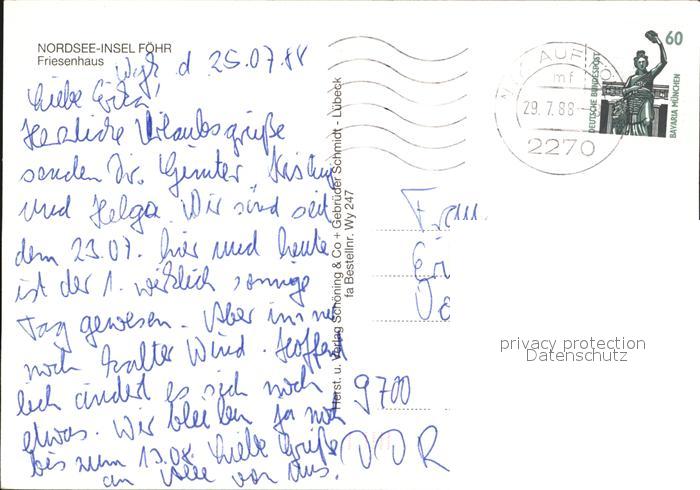 NORDSEE-INSEL FÖHR
Friesenhaus
Wyk d 25.07.88
Liebe Erika!
Herzliche Urlaubsgrüße
senden Dir Günter Kristin
und Helga. Wir sind seit
dem 23.07. hier und heute
ist der 1. wirklich sonnige
Tag gewesen. Aber immer
noch kalter Wind. Hoffent
lich ändert es sich noch
etwas. Wir bleiben ja noch
bis zum 13.08. Liebe Grüße
an Alle von uns.
Horst u. Verlag Schöning & Co + Gebrüder Schmidt - Lübeck
fa Bestellnr. Wy 247
NK AUF FÖ
mf
29.7.88
2270
60
DEUTSCHE BUNDESPOST
BAVARIA MÜNCHEN
Frau
Eri
9700
DDR
privacy protection
Datenschutz